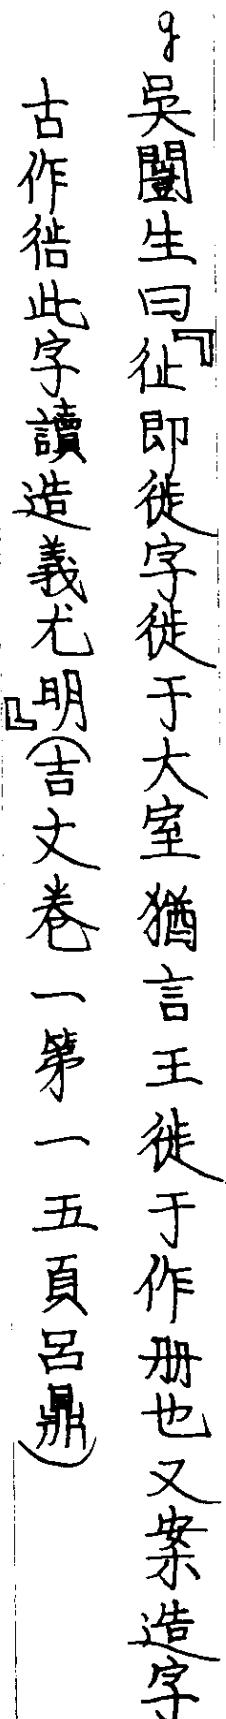 9吳闓生曰『㢟即徙字徙于大室猶言王徙于作册也又案造字
古作𢓜此字讀造義尤明』(吉文卷一第一五頁呂鼎)